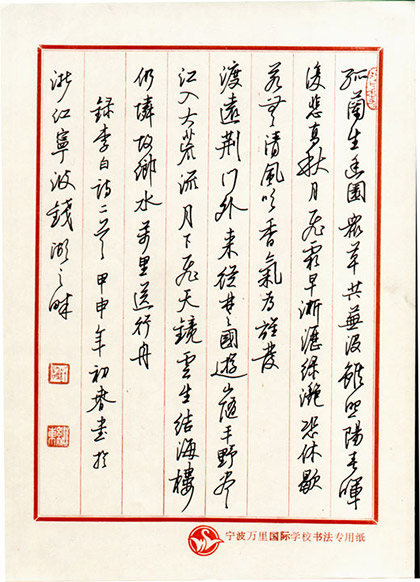 孤蘭生幽園眾草共蕪沒雖照陽春暉
復悲高秋月飛霜早淅瀝綠灧恐休歇
若無清風吹香氣為誰發
渡遠荊門外來從楚國遊山隨平野盡
江入大荒流月下飛天鏡雲生結海樓
仍憐故鄉水萬里送行舟
錄李白詩二首甲申年初春書於
浙江寧波錢湖之畔
宁波万里国际学校书法专用纸